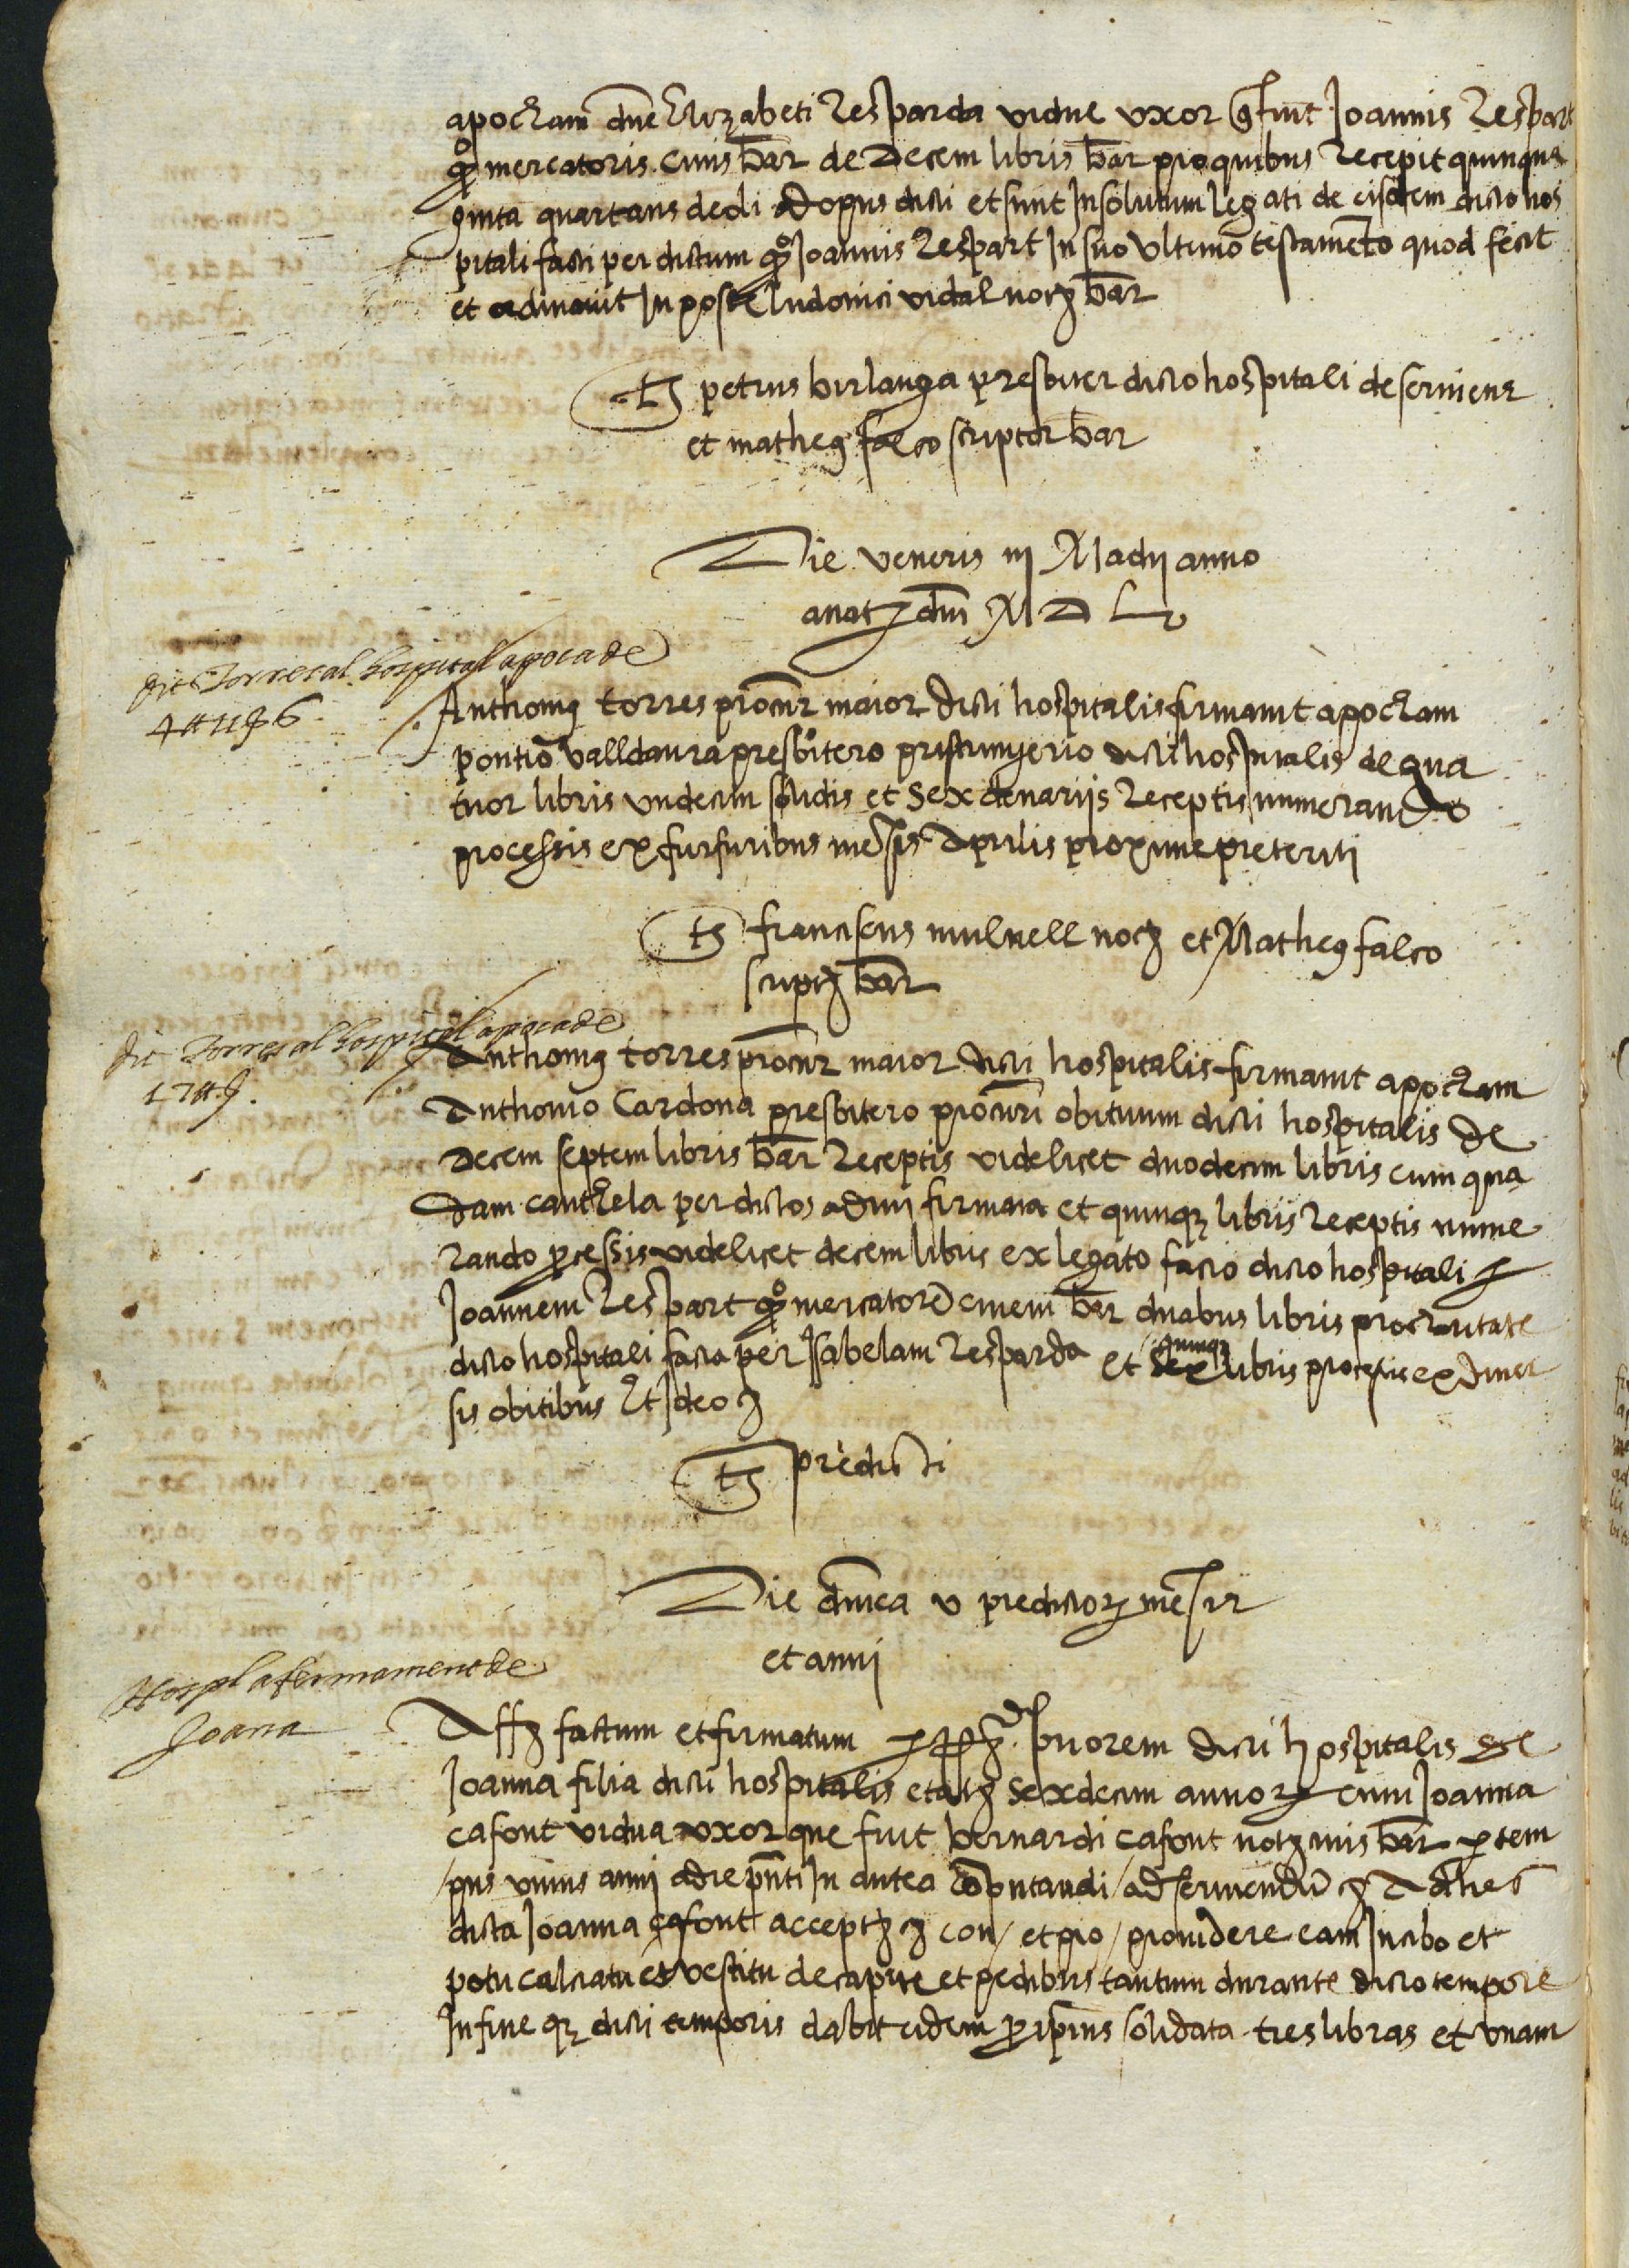 apocham dne Elizabeti Resparda vidue uxor q fuit Joannis Respart
qº mercatoris civis bar de decem libris bar pro quibus recepit quinqua
ginta quartans de oli ad opus dicti et sunt in solutum legati de eisdem dicto hos
pitali facti per dictum qº Joannis Respart in suo ultimo testamento quod fecit
et ordinavit in posse ludovici vidal notz bar
ts petrus birlanga presbiter dicto hospitali deserviens
et matheus falco scriptor bar
Die veneris iij Madij anno
a natz dni MDL
dit Torres al hospital apoca de
4 ll 11 s 6
Anthonius torres procur maior dicti hospitalis firmavit apocham
pontio valldaura presbitero pristinyerio dicti hospitalis de qua
tuor libris undecim solidis et sex denariis receptis numerando
processis ex furfuribus mensis Aprilis proxime preteriti
ts franciscus mulnell notz et Matheus falco
scriptz bar
dit Torres al hospital apoca de
17 ll s.
Anthonius torres procur maior dicti hospitalis firmavit apocham
Anthonio Cardona presbitero procuri obituum dicti hospitalis de
decem septem libris bar receptis videlicet duodecim libris cum qua
dam cauthela per dictos admi firmata et quinqz libris receptis nume
rando processis videlicet decem libris ex legato facto dicto hospitali p
Joannem Respart qº mercatore civem bar duabus libris pro charitate
dicto hospitali facta per Isabelam Resparda et sex quinqz libris processis ex diver
sis obitibus Et Ideo z
ts predicti
Die dnica v predictorz mensis
et anni
Hospl afermament de
Joana
Affz factum et firmatum p priorem dicti hospitalis de
Joanna filia dicti hospitalis etatz sexdecim annorz cum Joanna
cafont vidua uxor que fuit bernardi cafont notz civis bar p tem
pus unius anni a die pnti in antea computandi / ad serviendu z Ad hec
dicta Joanna cafont acceptz z con / et pro / providere eam in cibo et
potu calciatu et vestitu de capite et pedibus tantum durante dicto tempore
In fine qz dicti temporis dabit eidem pro ipsius solidata tres libras et unam